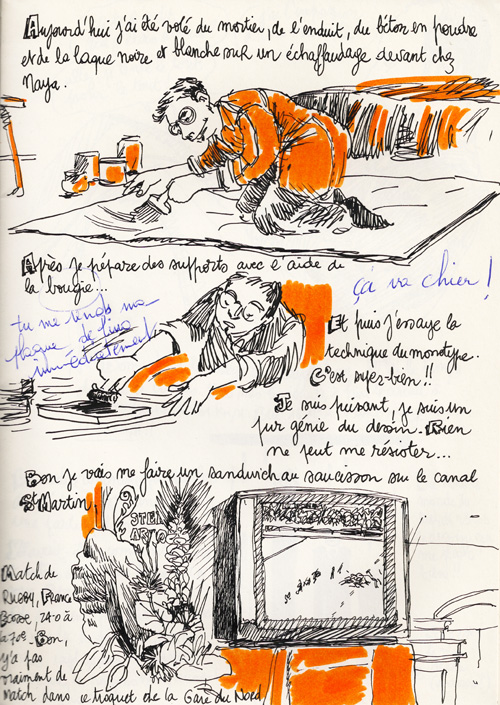 Aujourd'hui j'ai été volé du mortier, de l'enduit, du béton en poudre
et de la laque noire et blanche sur un échaffaudage devant chez
Naya.
Après je prépare des supports avec l'aide de
la bougie...
ça va chier !
tu me rends ma
plaque de lino
immédiatement
Et puis j'essaye la
technique du monotype.
C'est super-bien !!
Je suis puissant, je suis un
pur génie du dessin. Rien
ne peut me résister...
Bon je vais me faire un sandwich au saucisson sur le canal
St Martin.
STELLA
ARTOIS
Match de
Rugby, France
24-0 à
la 70e. Bon,
y'a pas
vraiment de
match dans ce troquet de la Gare du Nord